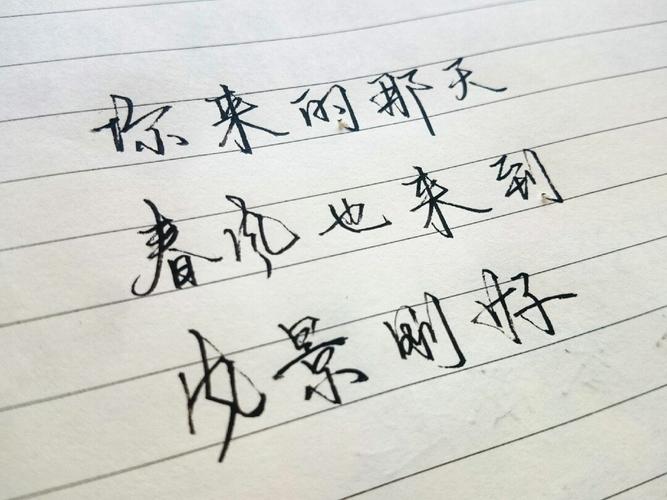 你来的那天
春风也来到
风景刚好